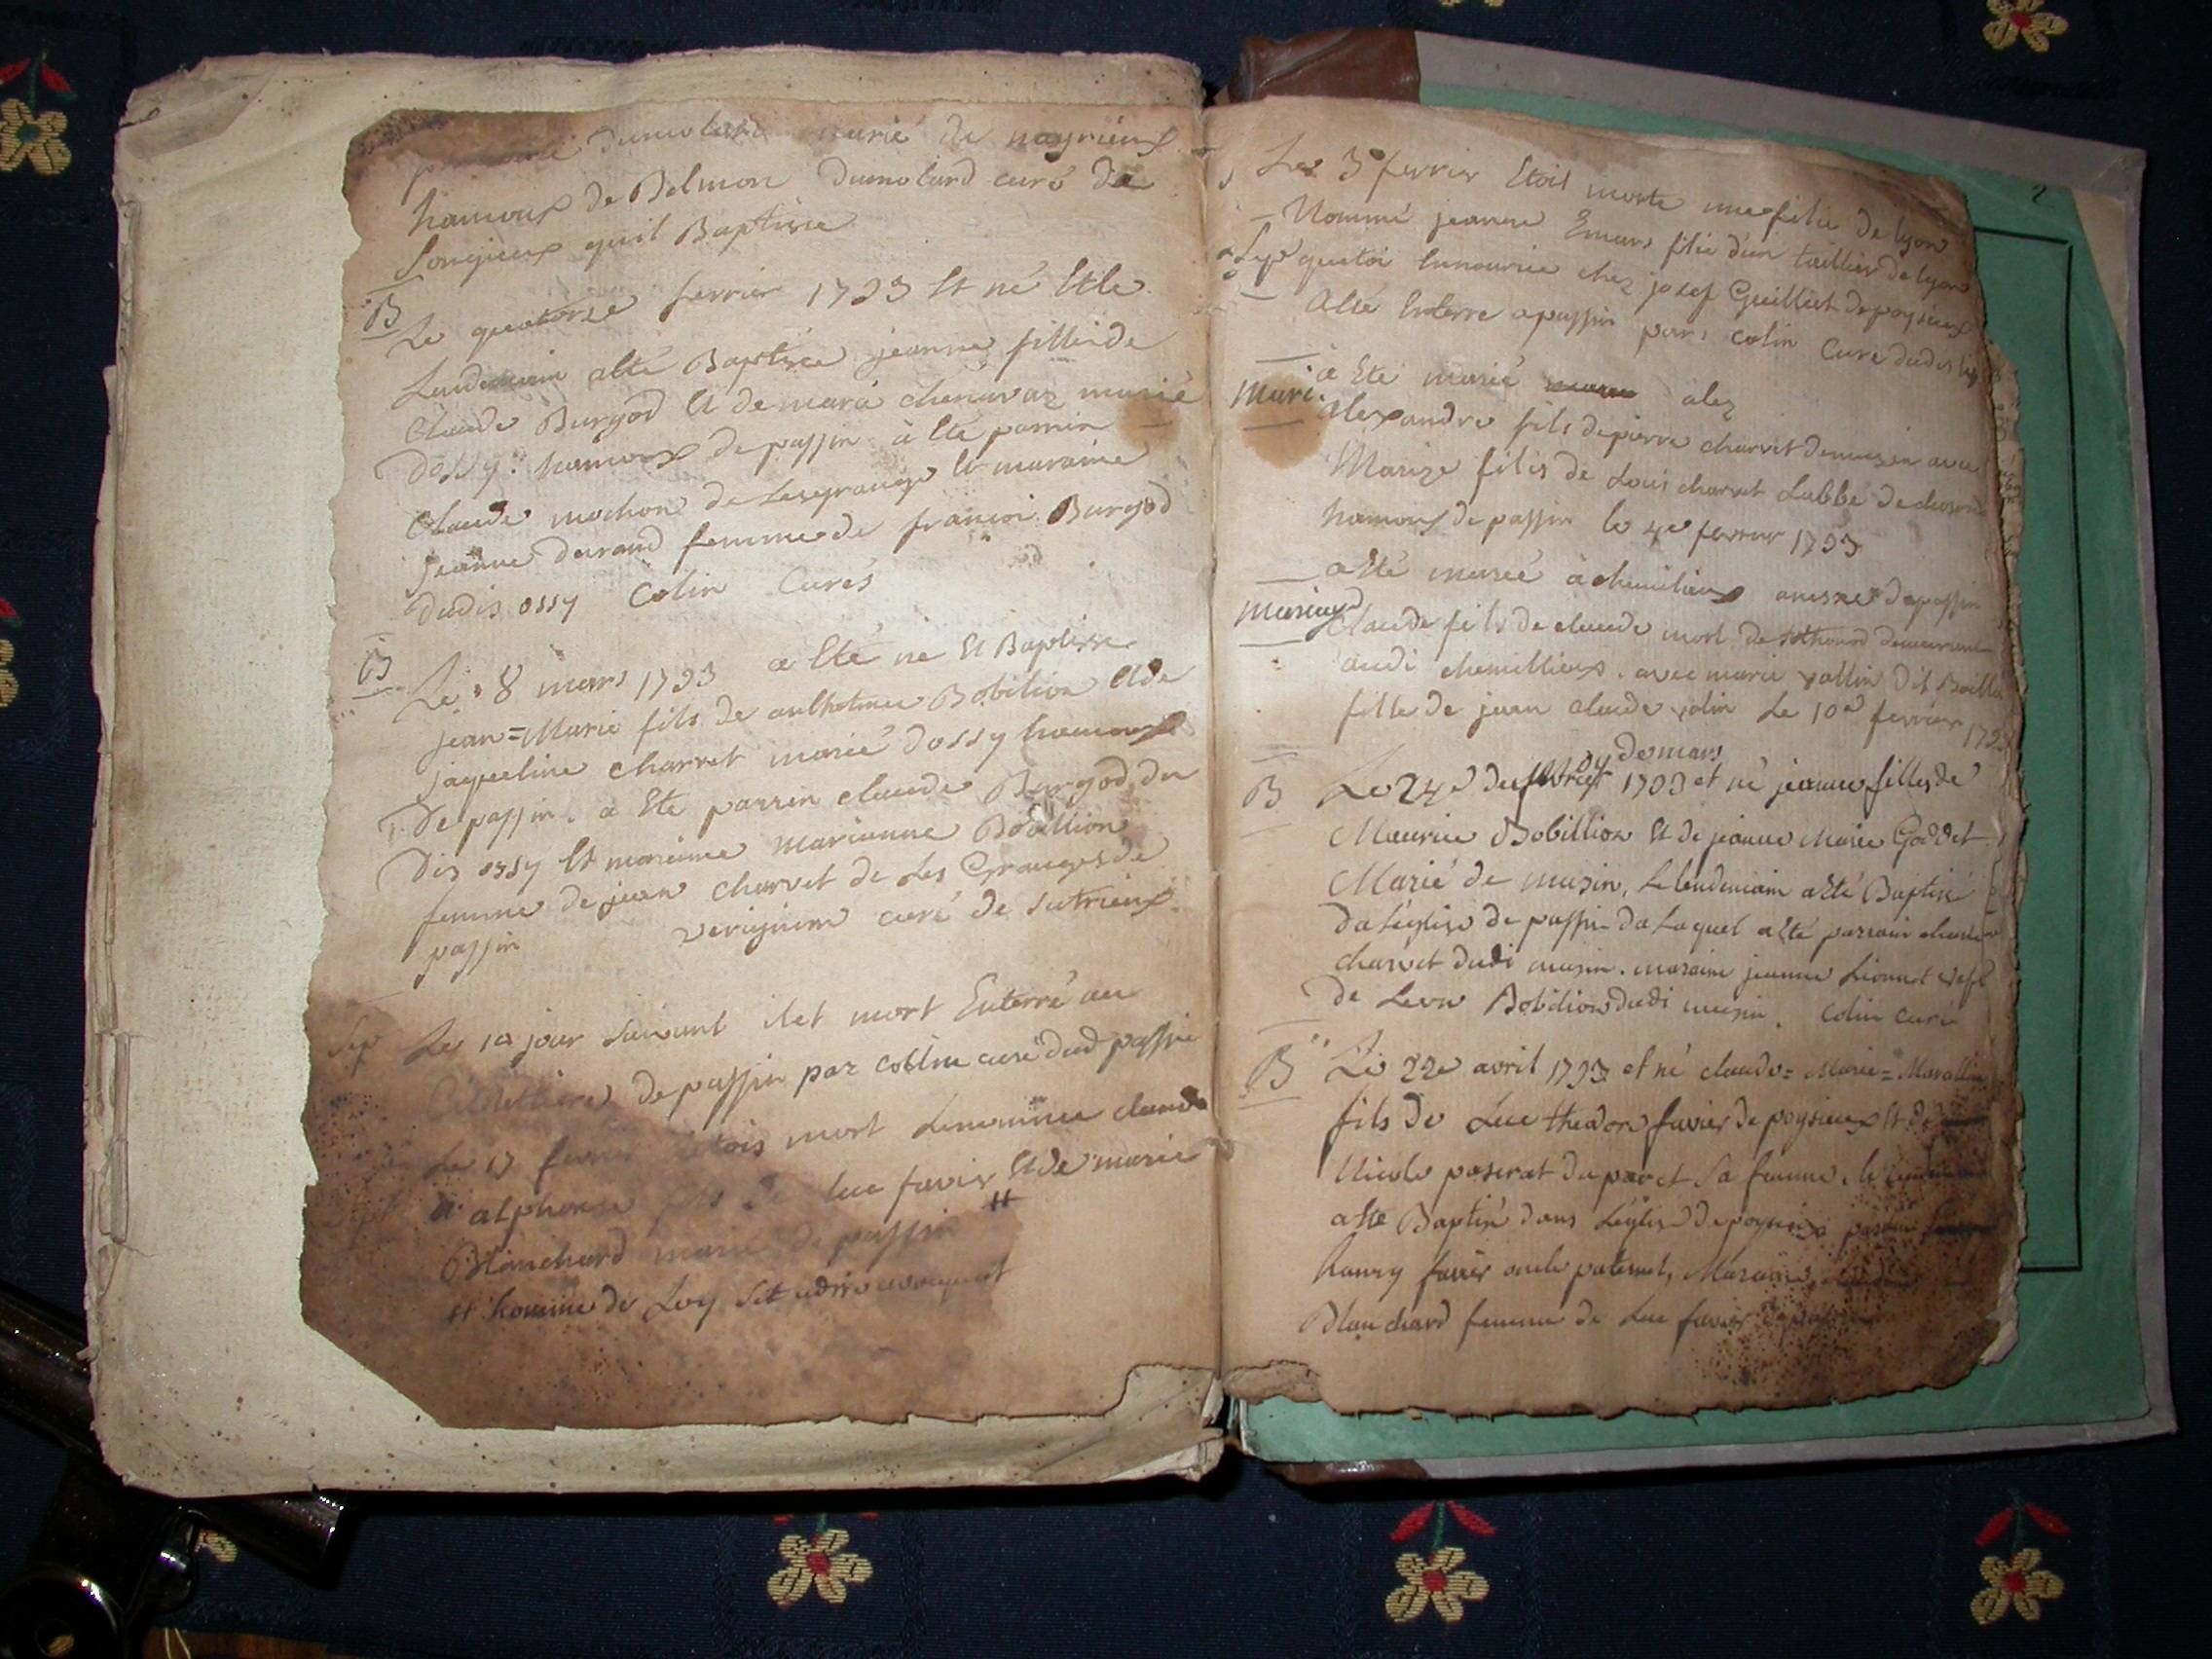 dumolard marié de nayrieux
hamoux de Belmon dumolard curé de
Songieux quil Baptisee
B
Le quatorze ferrier 1793 Et né Et le
Landemain alté Baptisée jeanne filles de
Claude Burgod Et de mara chenavaz marié
dossy hamoux de passin à Eté parrin
Claude mochon de Lesgrange Et maraine
jeanne durand femme de francoi Burgod
dudis ossy Colin Curés
B
Le 8 mars 1793 a Eté né Et Baptisse
jean=Marie fils de anthelme Bobilion Et de
jaqueline charvet marié dossy hamoux
De passin. a Ete parrin claude Burgod du
Dis ossy Et maraine marianne Bobillion
femme de jean charvet de Les Granges de
passin verignim curé de sutrieux
Sep
Le 10 jour suivant ilet mort Enterré au
Cimettiere de passin par Coline curé dud passin
Le 17 mort Lenommee claude
alphonse fils de luc favier Et de marie
Blanchard marié de passin #
# homme de Loy Set adire avouquat
2
Les 3e ferrier Etoit morte une filie de lyon
Nommé jeanne Emars filie d'un taillier de lyon
Sep quetoi Ennourice chez josef Guilliet de poysieux
alté Enterre apassin par colin Cure dudis
à Eté marié alez
Mari
Alexandre fils de pierre charvet de musin avec
Marize filis de Loui charvet Labbé de
hamoux de passin le 4e ferrier 1793
a Eté marié à chemilieux anexe de passin
Mariage
Claude fils de claude mort de sothonod demeurant
audi chemillieux. avec marie vollin dit
fille de jean claude volin Le 10e ferrier 1793
ou de mars
B
Le 24e de fevrier 1793 et né jeanne filles de
Maurice Bobillion Et de jeanne Marie Goddet
Marié de musin, Le lendemain alté Baptisé
da Léglise de passin da Laquel alté parrain claude
charvet dudi musin. maraine jeanne Lionnet
de Leon Bobilion dudi musin. Colin curé
B
Le 22e avril 1793 et né claude=Marie=
fils de Luc theodore favier de poysieux Et de
Nicole paserat du parct sa femme, le
alte Baptisé dans Léglise de poysieux
hanry favier oncle paternel, Maraine
Blanchard femme de Luc favier de passin